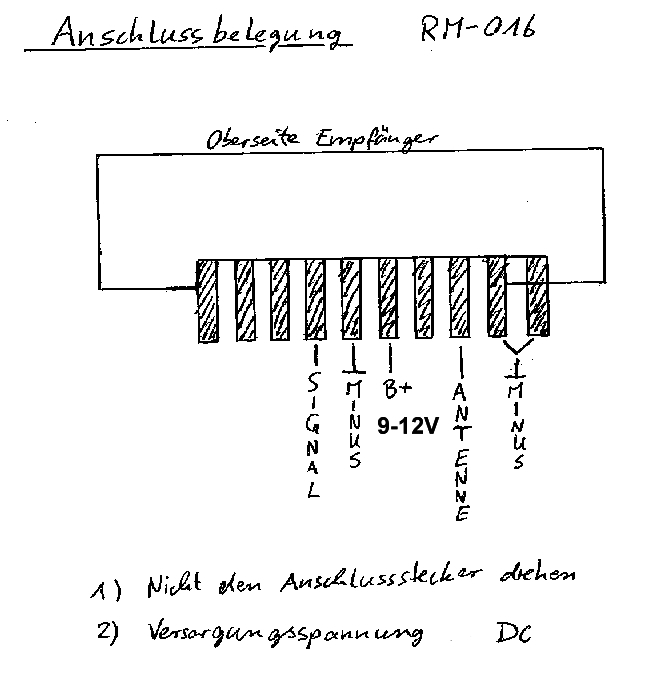 Anschlussbelegung RM-016
Oberseite Empfänger
SIGNAL
MINUS
B+
9-12V
ANTENNE
MINUS
1) Nicht den Anschlussstecker drehen
2) Versorgungsspannung DC